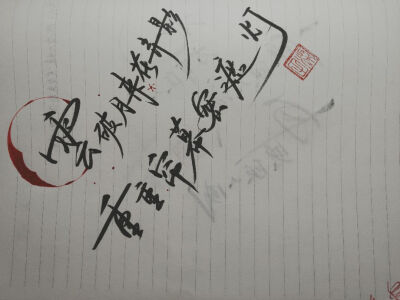 雲破月来花弄影
重重帘幕密遮灯